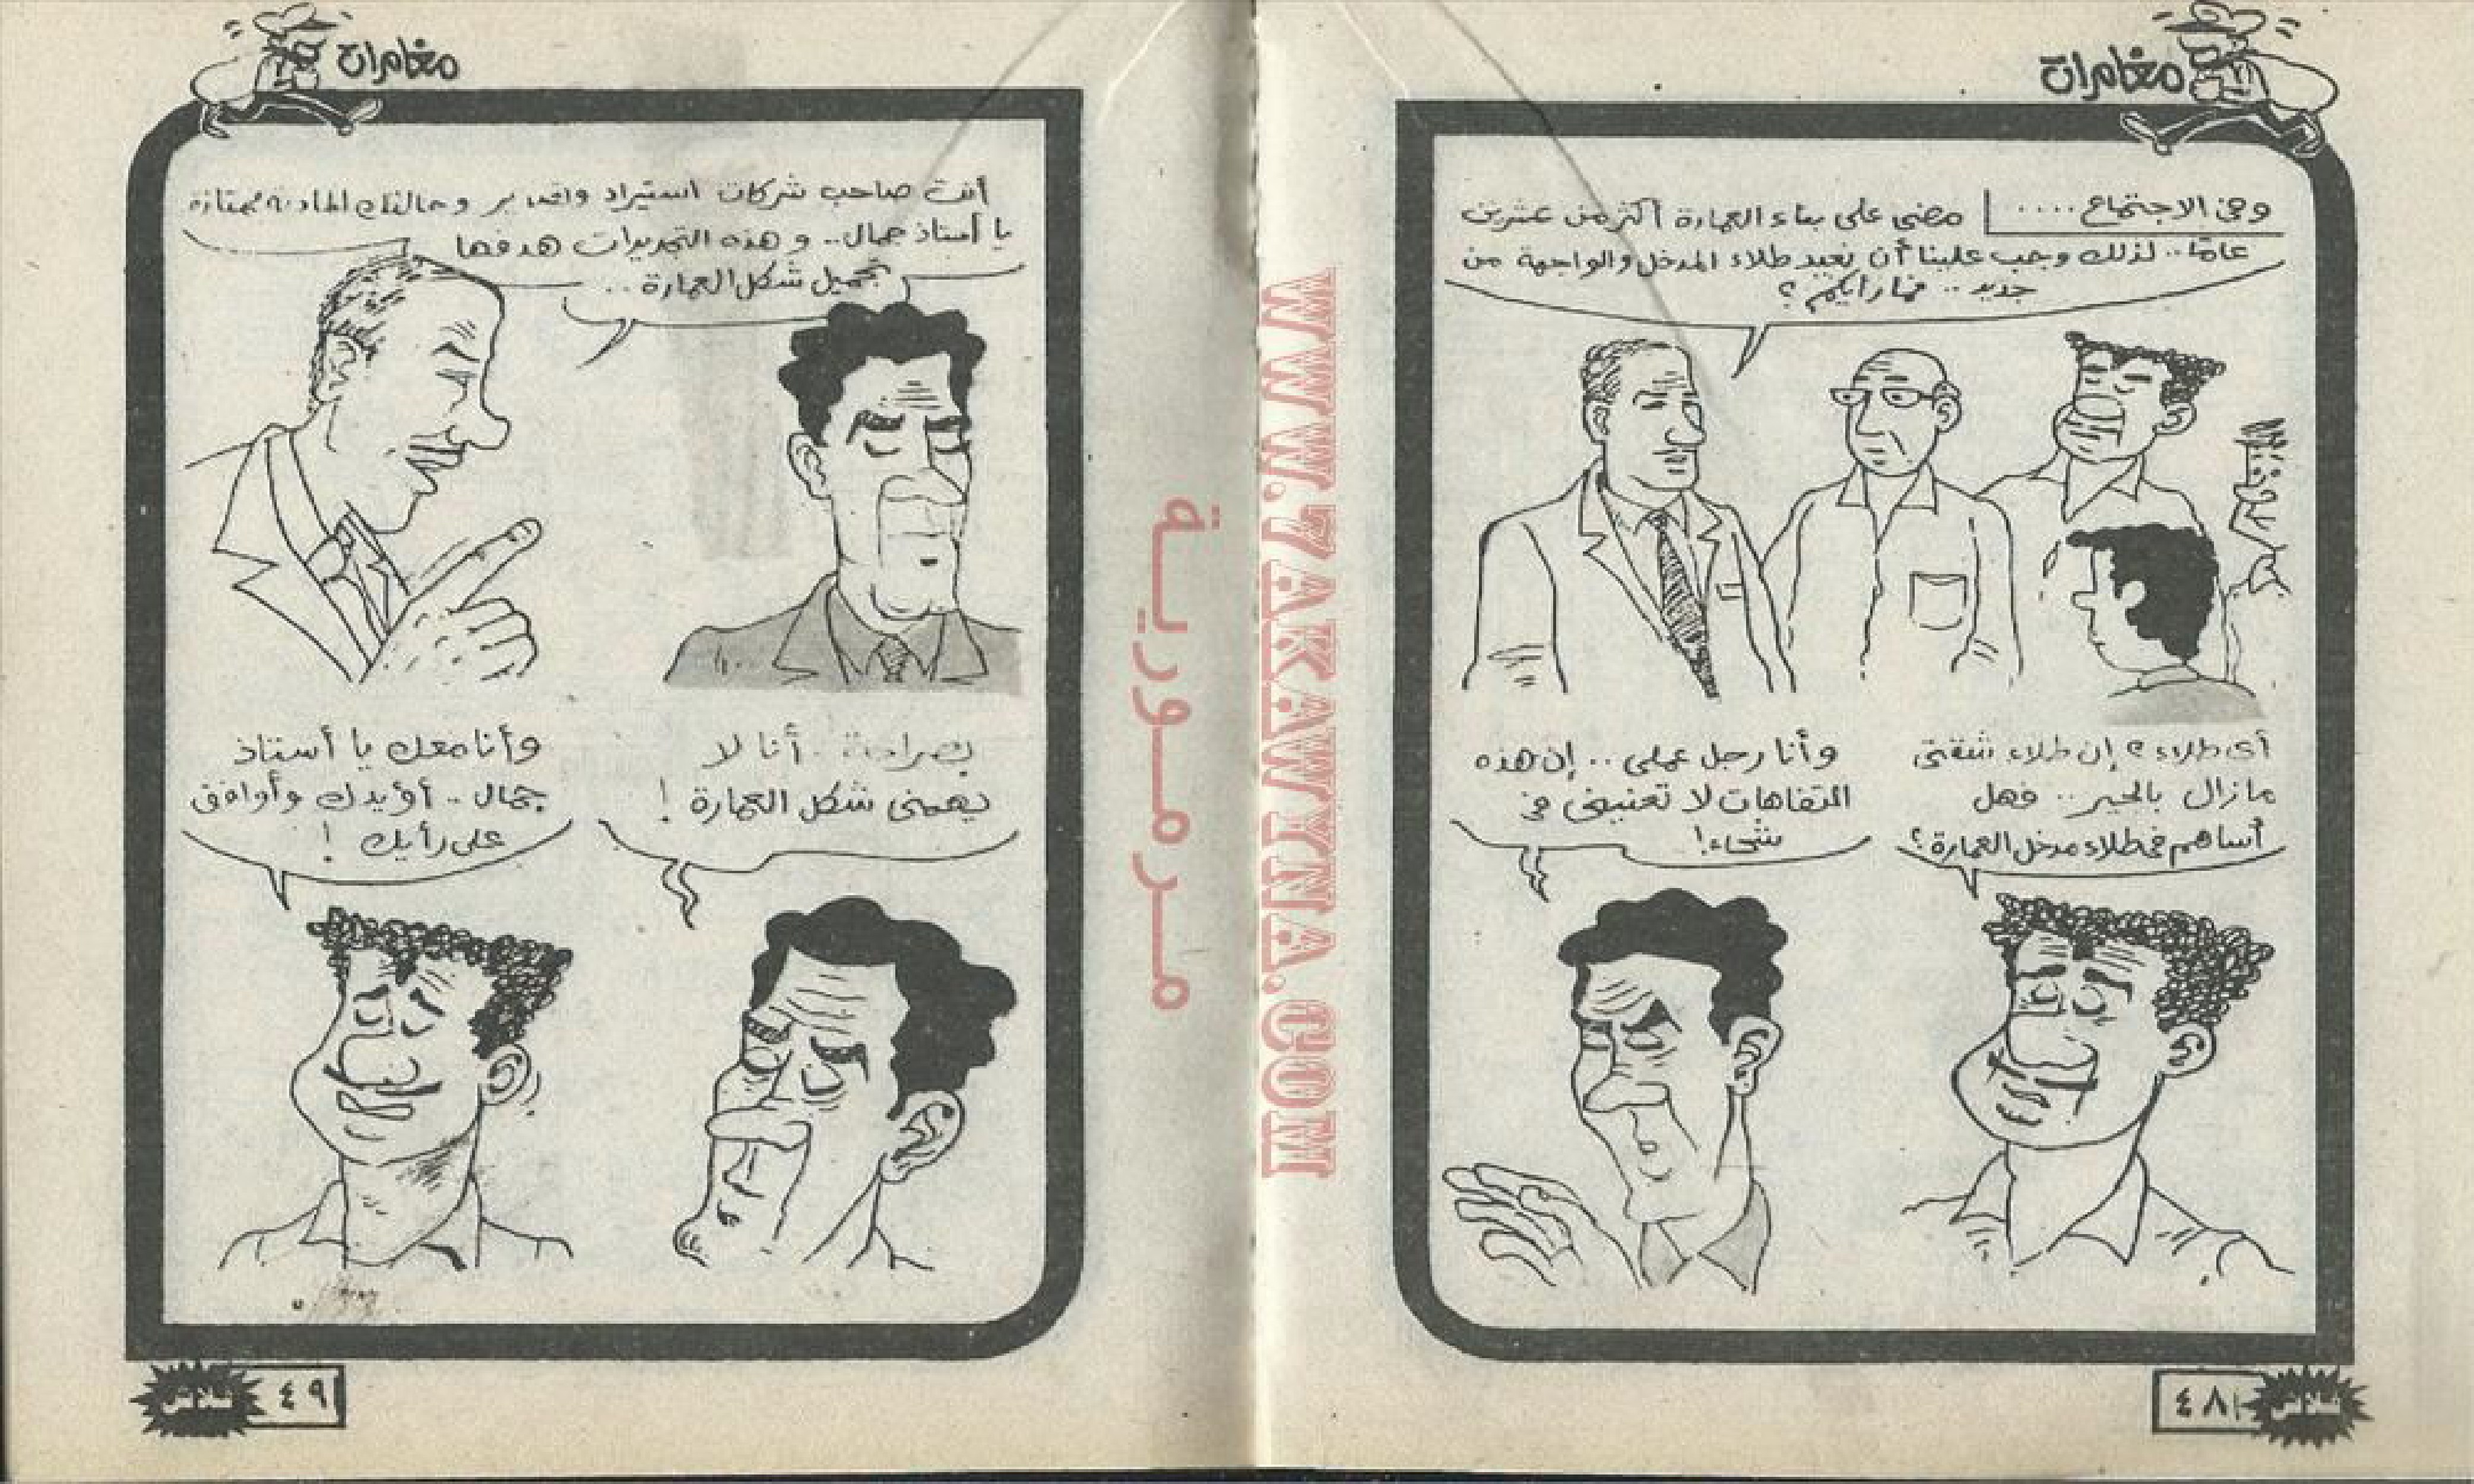 مغامرات
وفى الاجتماع....
مضى على بناء العمارة أكثر من عشرين
عامًا.. لذلك وجب علينا أن نعيد طلاء المدخل والواجهة من
جديد.. فما رأيكم؟
أى طلاء؟ إن طلاء شقتى
مازال بالجير.. فهل
أساهم فى طلاء مدخل العمارة؟
وأنا رجل عملى.. إن هذه
التفاهات لا تعنينى فى
شىء!
٤٨
فلاش
WWW.7AKAWYNA.COM
مرمورية
مغامرات
أنت صاحب شركات استيراد وتصدير وحالتك المادية ممتازة
يا أستاذ جمال.. و هذه التجديدات هدفها
تجميل شكل العمارة..
بصراحة.. أنا لا
يهمنى شكل العمارة!
وأنا معك يا أستاذ
جمال.. أؤيدك وأوافق
على رأيك!
٤٩
فلاش